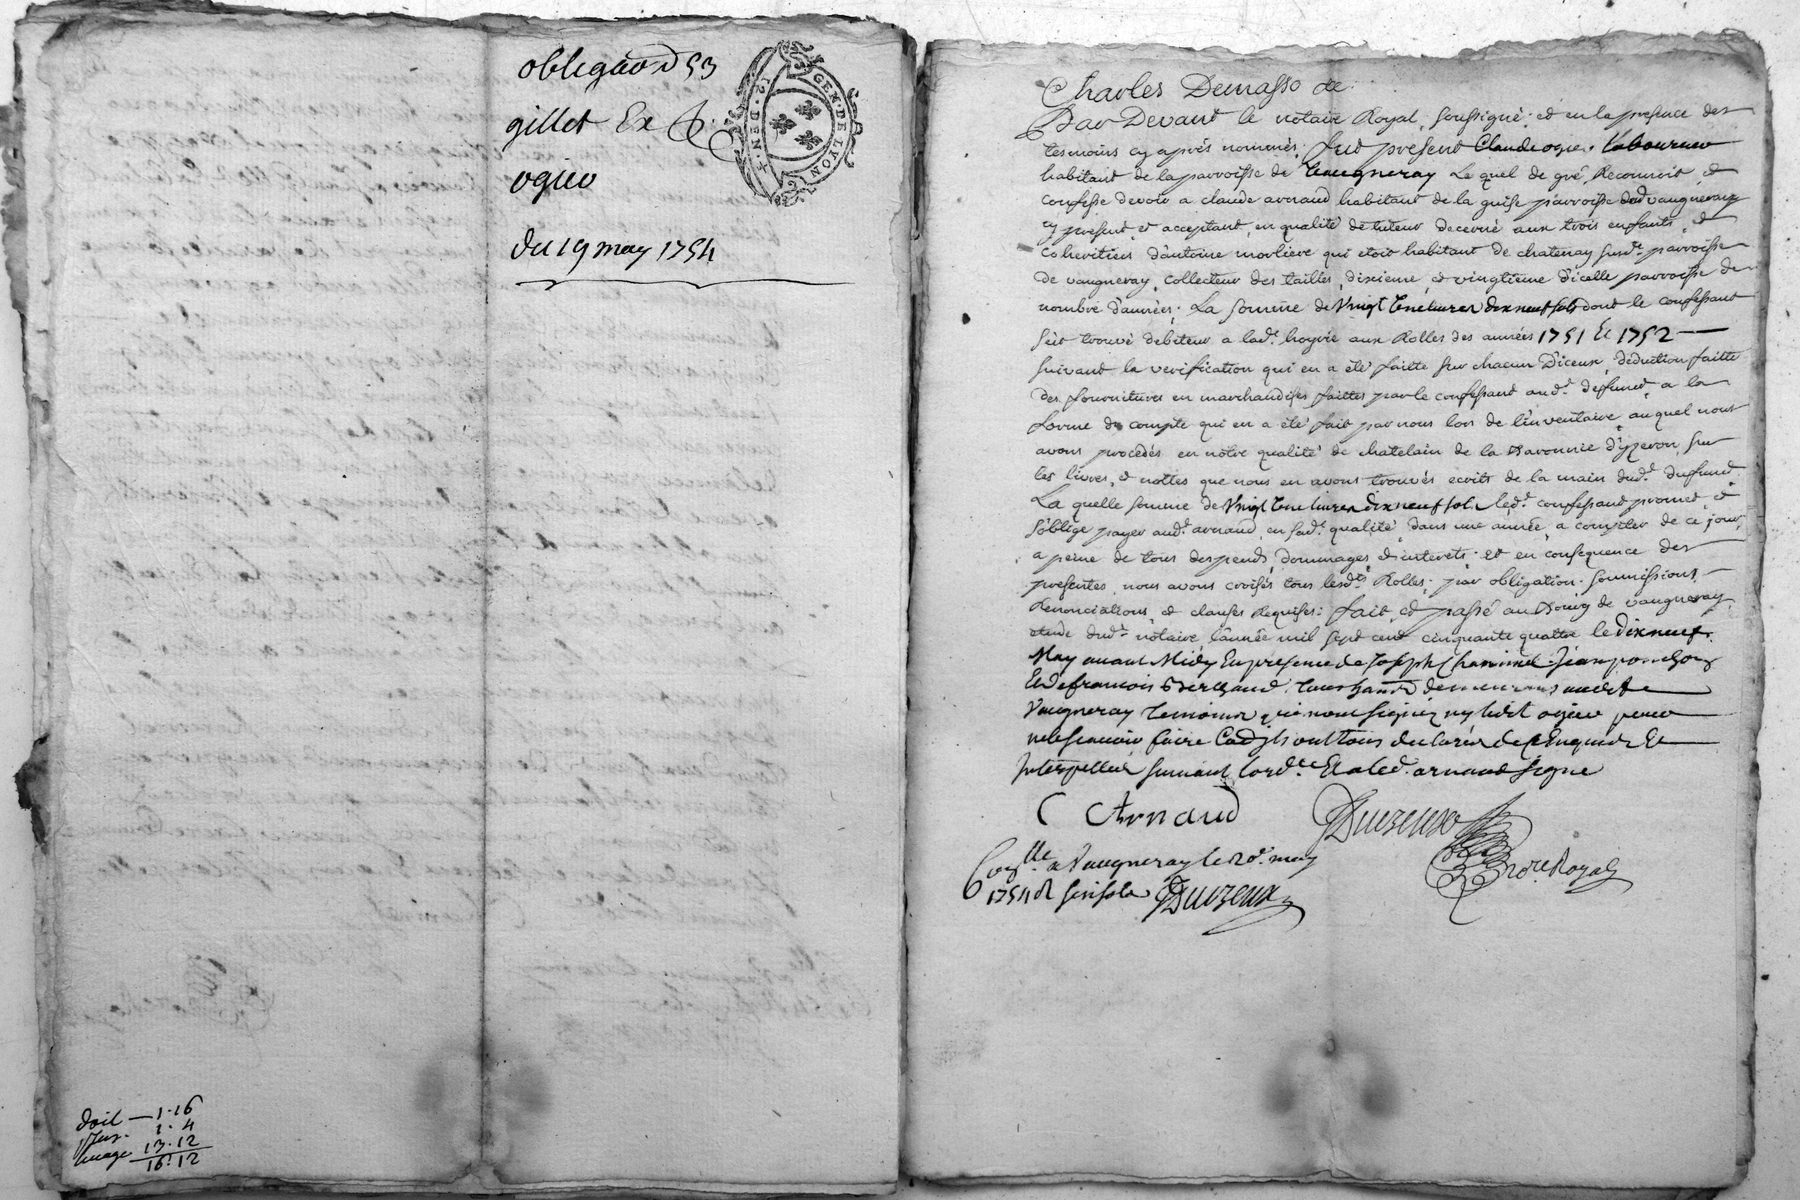 obligãon d 53
gillet Ex
ogier
du 19 may 1754
GEN · DE · LYON
12 · DEN
doit — 1·16
1· 4
13·12
16·12
Charles Demasso &c.
Par Devant le notaire Royal, soussigné, et en la presence des
tesmoins cy après nommés, fut present Claude ogier laboureur
habitant de la parroisse de Vaugneray Le quel de gré Reconnoit et
confesse devoir a claude arnaud habitant de la parroisse dud vaugneray
cy present et acceptant, en qualité de tuteur decerné aux trois enfants et
cohéritiers d'antoine morliere qui etoit habitant de chatenay susde parroisse
de vaugneray, Collecteur des tailles, dixieme, et vingtieme d'icelle parroisse de
nombre d'années, La somme de Vingt livres dix neuf sols dont le confessant
s'est trouvé debiteur a lad. hoyrie aux Rolles des années 1751 et 1752 —
suivant la verification qui en a été faitte sur chacun D'iceux, deduction faitte
des fournitures en marchandises faittes par le confessant aud. deffunct, a la
forme du compte qui en a été fait par nous lors de l'inventaire, auquel nous
avons procédés en notre qualité de chatelain de la Baronnie d'yzeron, sur
les livres, et nottes que nous en avons trouvés ecrits de la main dud. deffunct
La quelle somme de Vingt livres dix neuf sols led. confessant promet et
s'oblige payer aud. arnaud, en sad. qualité, dans une année, a compter de ce jour,
a peine de tous despends, dommages et interets. Et en consequence des
presentes, nous avons croisés tous lesdts Rolles. par obligation, soumissions,
Renonciations, et clauses Requises: fait et passé au Bourg de vaugneray,
etude dudt notaire l'année mil sept cent cinquante quattre le dix neuf
May avant Midy En presence de Joseph Chaminet Jean ponchon
Et de francois Berthaud, tous demeurants aud
Vaugneray temoins qui n'ont signé ny ledit ogier pour
ne le scavoir faire ont tous declarés de ce Enquis Et
Interpellés suivant l'ord.ce Et a led. arnaud signé
C Arnaud
Not.re Royal
Con.lle a Vaugneray le 20e. may
1754 R six sols